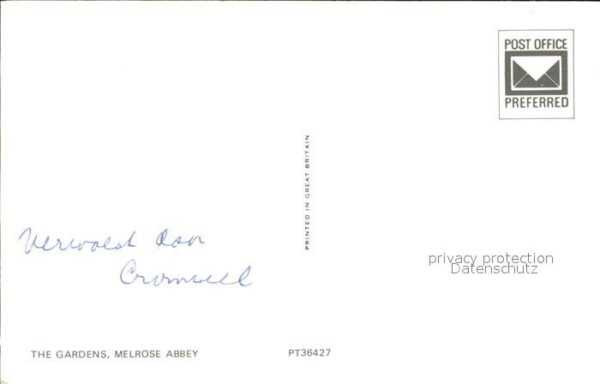 POST OFFICE
PREFERRED
PRINTED IN GREAT BRITAIN
Verwoest door
Cromwell
privacy protection
Datenschutz
THE GARDENS, MELROSE ABBEY
PT36427